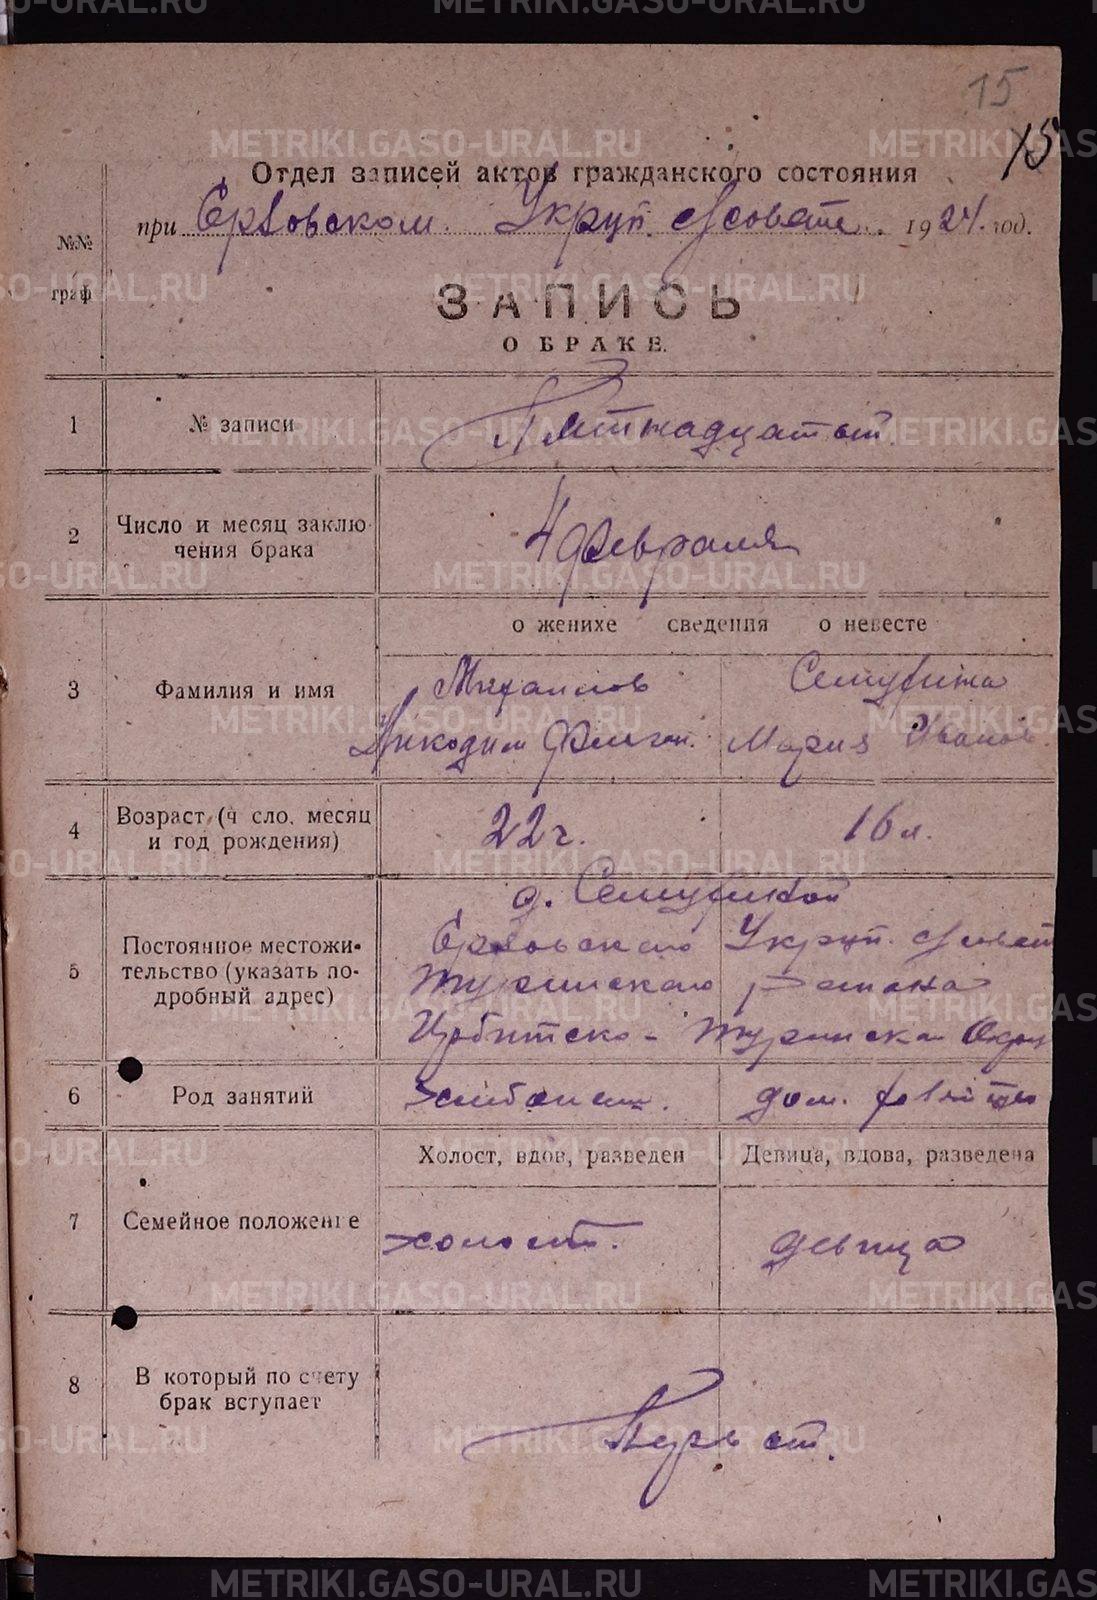 15
15
Отдел записей актов гражданского состояния
при Ерзовском Укруп. с/совете. 1924 год.
№№
граф
ЗАПИСЬ
О БРАКЕ.
1 № записи Пятнадцатый
2 Число и месяц заклю-
чения брака 4 февраля
о женихе сведения о невесте
3 Фамилия и имя Михайлов
Никодим Мария Иванов.
4 Возраст (число, месяц
и год рождения) 22 г. 16 л.
5 Постоянное местожи-
тельство (указать по-
дробный адрес)
д.
Ерзовского Укруп. с/совет
Туринского района
Ирбитско-Туринскаи Округ
6 Род занятий хлебопаш. дом. работа
Холост, вдов, разведен Девица, вдова, разведена
7 Семейное положение холост. девица
8 В который по счету
брак вступает Первый.
METRIKI.GASO-URAL.RU